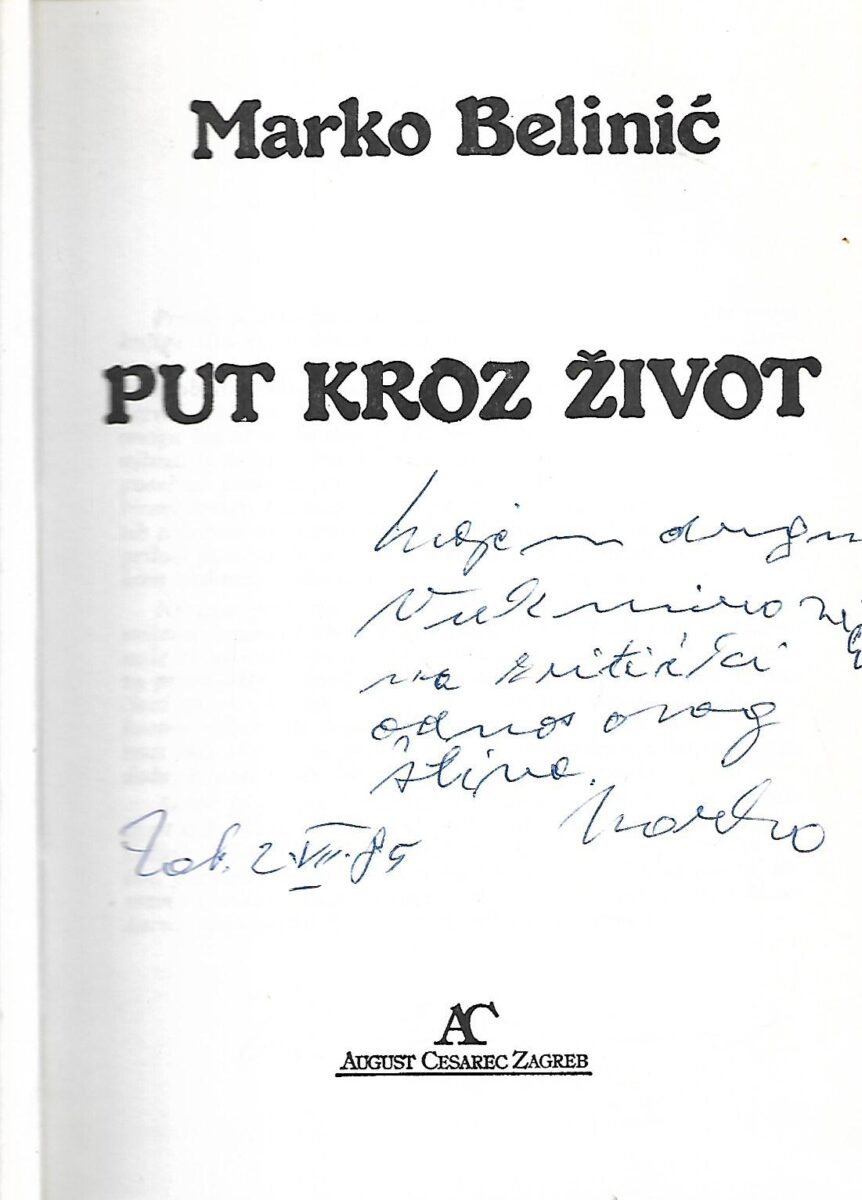 Marko Belinić
PUT KROZ ŽIVOT
drugu
na kritički
odnos ovog
štiva.
Marko
Zgb. 2.VII.85
AC
AUGUST CESAREC ZAGREB